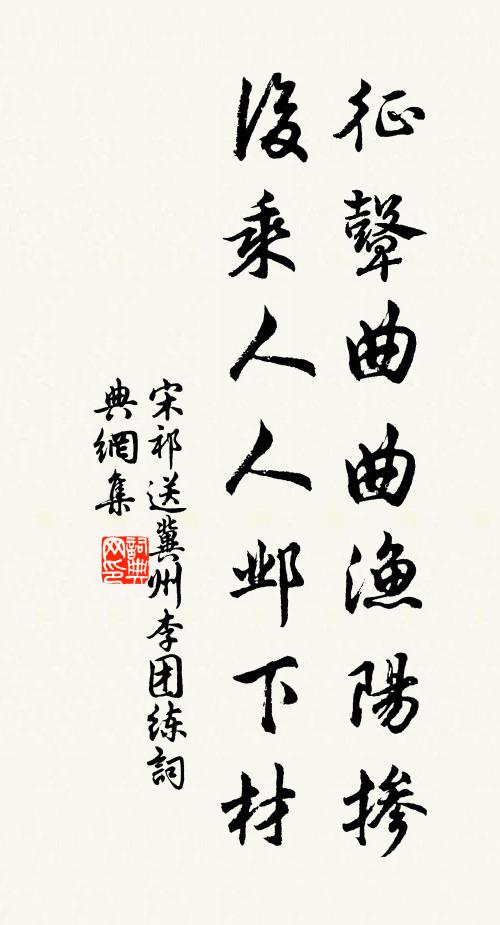 征鼙曲曲渔陽掺
後乘人人邺下材
宋祁送冀州李团练詞
典網集
詞典
网印